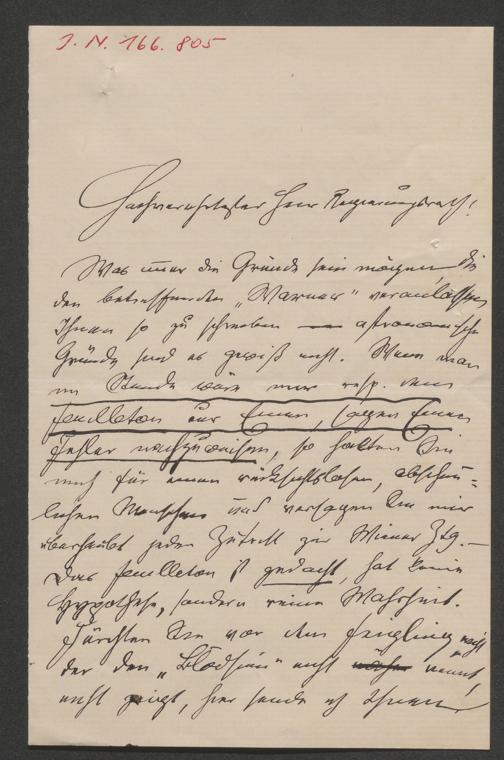 J. N. 166.805
Hochverehrtester Herr Regierungsrath!
Was immer die Gründe sein mögen die
den betreffenden „Warner" veranlassen
Ihnen so zu schreiben — astronomische
Gründe sind es gewiß nicht. Wenn man
im Stande wäre mir resp. dem
Feuilleton nur Einen, sagen Einen
Fehler nachzuweisen, so halten Sie
mich für einen rücksichtslosen, abscheu-
lichen Menschen und versagen Sie mir
überhaupt jeden Zutritt zur Wiener Ztg. —
Das Feuilleton ist gedacht, hat keine
Hypothese, sondern reine Wahrheit.
Fürchten Sie vor dem Feigling nicht
der den „Blödsinn" nicht nennt,
nicht zeigt, hier sende ich Ihnen